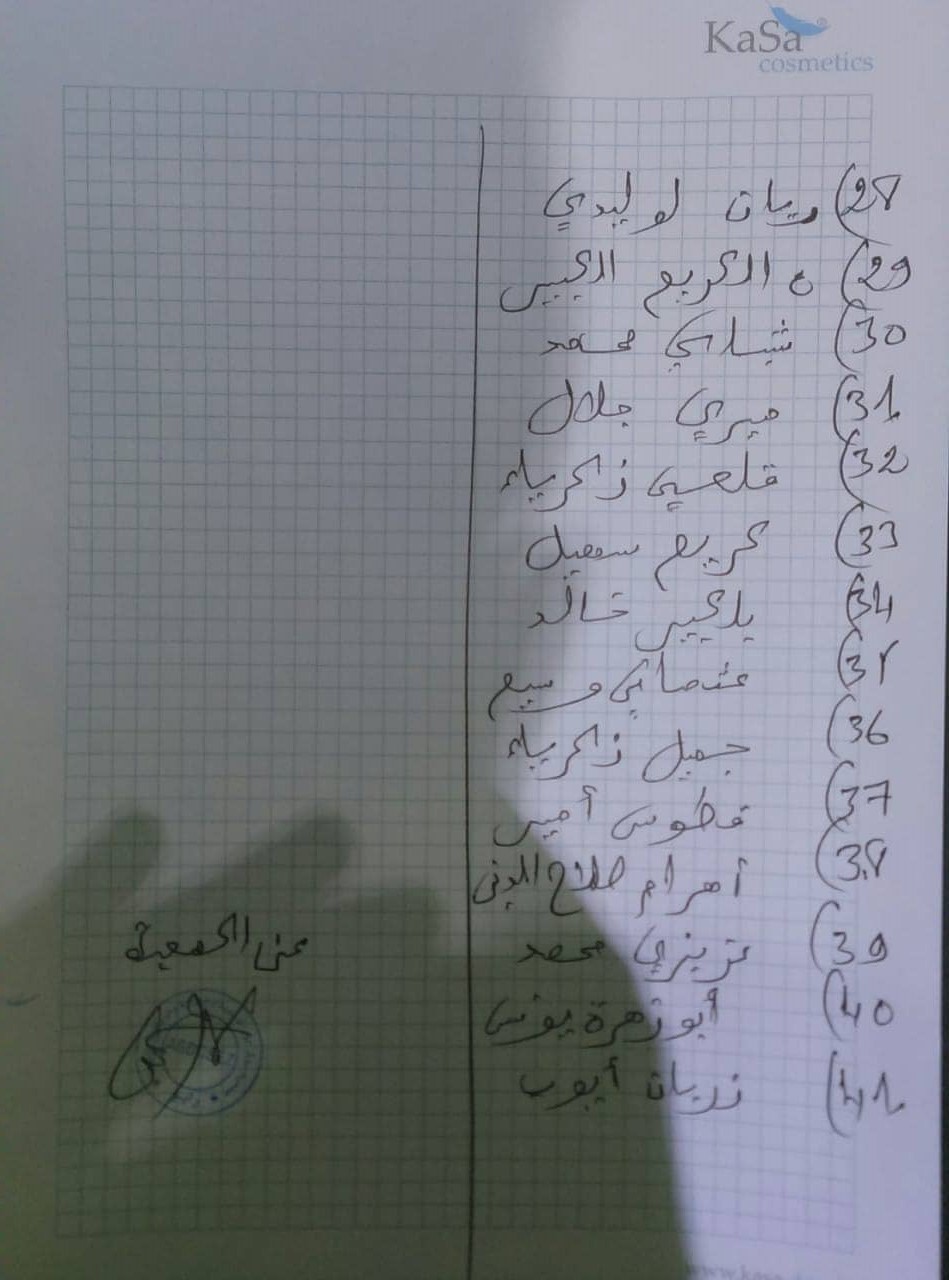 KaSa
cosmetics
28) ريان لوليدي
29) الكريم الكبير
30) شيلاكي محمد
31) ميري جلال
32) قلعي زكرياء
33) كريم سهيل
34) بلكبير خالد
35) عثماني وسيع
36) جميل زكرياء
37) قطوس أمين
38) أهرام صلاح الدين
39) عزيزي محمد
40) أبو زهرة يونس
41) زريان أيوب
عن الجمعية